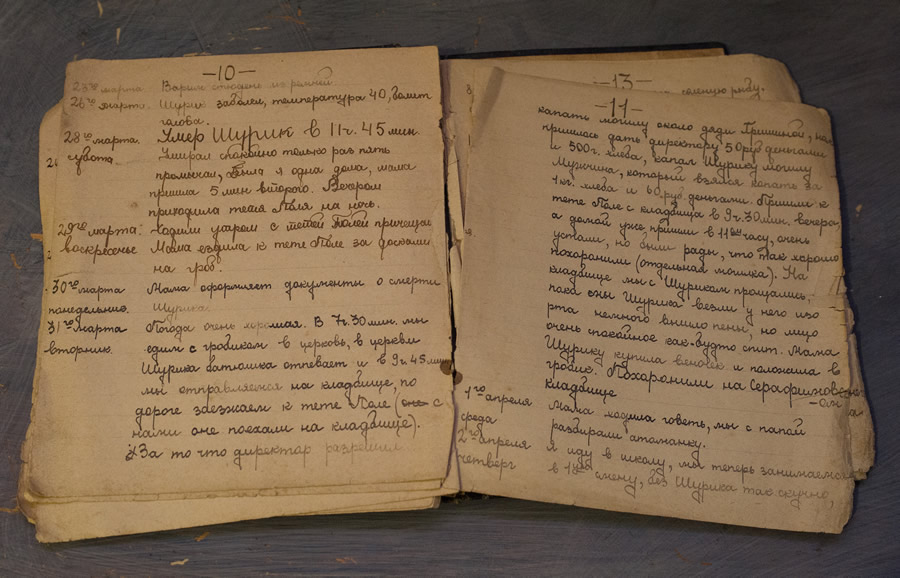 —10—
25го марта. Варим студень из ремней
26го марта. Шурик заболел, температура 40, болит
голова.
28го марта. Умер Шурик в 11ч. 45 мин.
суббота. Умирал спокойно только раз пять
промычал, была я одна дома, мама
пришла 5 мин второго. Вечером
приходила тетя Поля на ночь.
29го марта: Ходили утром с тетей Полей причащ
воскресенье Мама ездила к тете Поле за досками
на гроб.
30го марта Мама оформляет документы о смерти
понедельник. Шурика.
31го марта Погода очень хорошая. В 7ч. 30 мин. мы
вторник. едим с гробиком в церковь, в церкви
Шурика батюшка отпевает и в 9ч. 45 мин
мы отправляемся на кладбище, по
дороге заезжаем к тете Поле (оне с
нами оне поехали на кладбище).
За то что директор разрешил
—13—
соленую рыбу.
—11—
копать могилу около дяди Гришиной, нам
пришлось дать директору 50 руб деньгами
и 500 г. хлеба, копал Шурику могилу
мужчина, который взялся копать за
1 кг. хлеба и 60 руб деньгами. Пришли к
тете Поле с кладбища в 9ч. 30 мин. вечера
а домой уже пришли в 11ом часу, очень
устали, но были рады, что так хорошо
похоронили (отдельная могилка). На
кладбище мы с Шуриком прощались,
пока оны Шурика везли у него изо
рта немного вышло пены, но лицо
очень спокойное как-будто спит. Мама
Шурику купила веночек и положила в
гробик. Похоронили на Серафимовс
ком
кладбище
1го апреля Мама ходила говеть, мы с папой
среда разбирали атаманку.
2го апреля Я иду в школу, мы теперь занимаемся
четверг в 1ую смену, без Шурика так скучно,